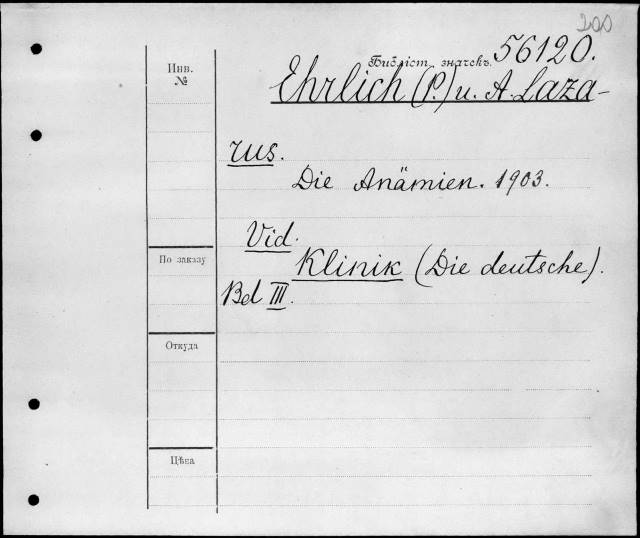 200
Библіот. значекъ. 56120.
Инв.
№
Ehrlich (P.) u. A. Laza-
rus.
Die Anämien. 1903.
Vid.
По заказу
Klinik (Die deutsche).
Bd III.
Откуда
Цѣна